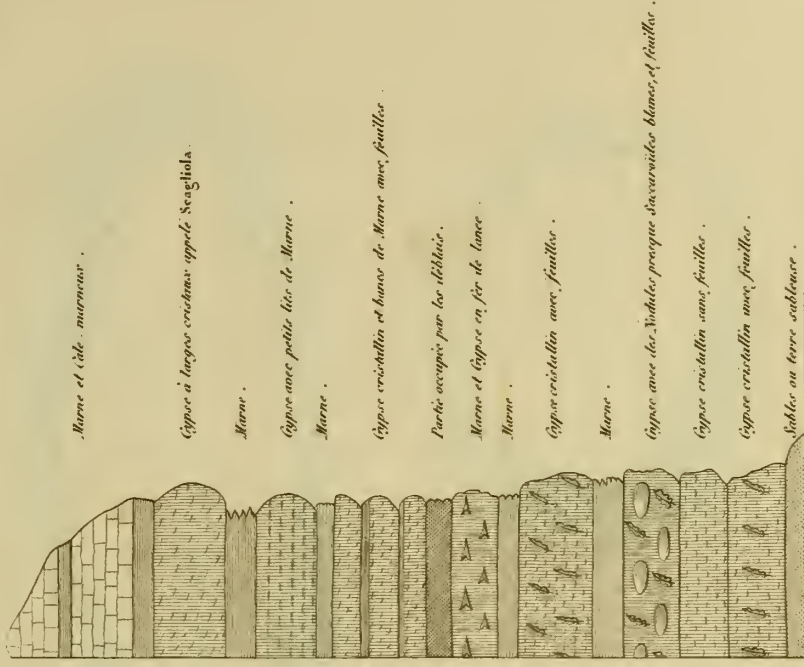 Marne et Calc. marneux.
Gypse à larges cristaux appelé Scagliola.
Marne.
Gypse avec petits lits de Marne.
Marne.
Gypse cristallin et bancs de Marne avec feuilles.
Partie occupée par les déblais.
Marne et Gypse en fer de lance.
Marne.
Gypse cristallin avec feuilles.
Marne.
Gypse avec des Nodules presque Saccaroïdes blancs, et feuilles.
Gypse cristallin sans feuilles.
Gypse cristallin avec feuilles.
Sables ou terre sableuse.